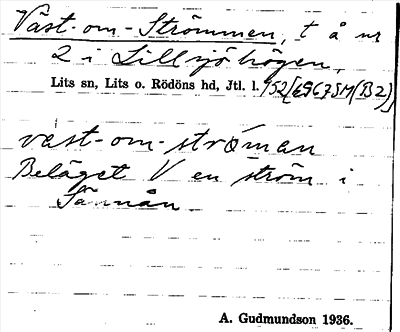 Väst-om-Strömmen, t å nr
2 i Lillsjöhögen,
Lits sn, Lits o. Rödöns hd, Jtl. l.
väst-om-stróman
Beläget V en ström i
A. Gudmundson 1936.